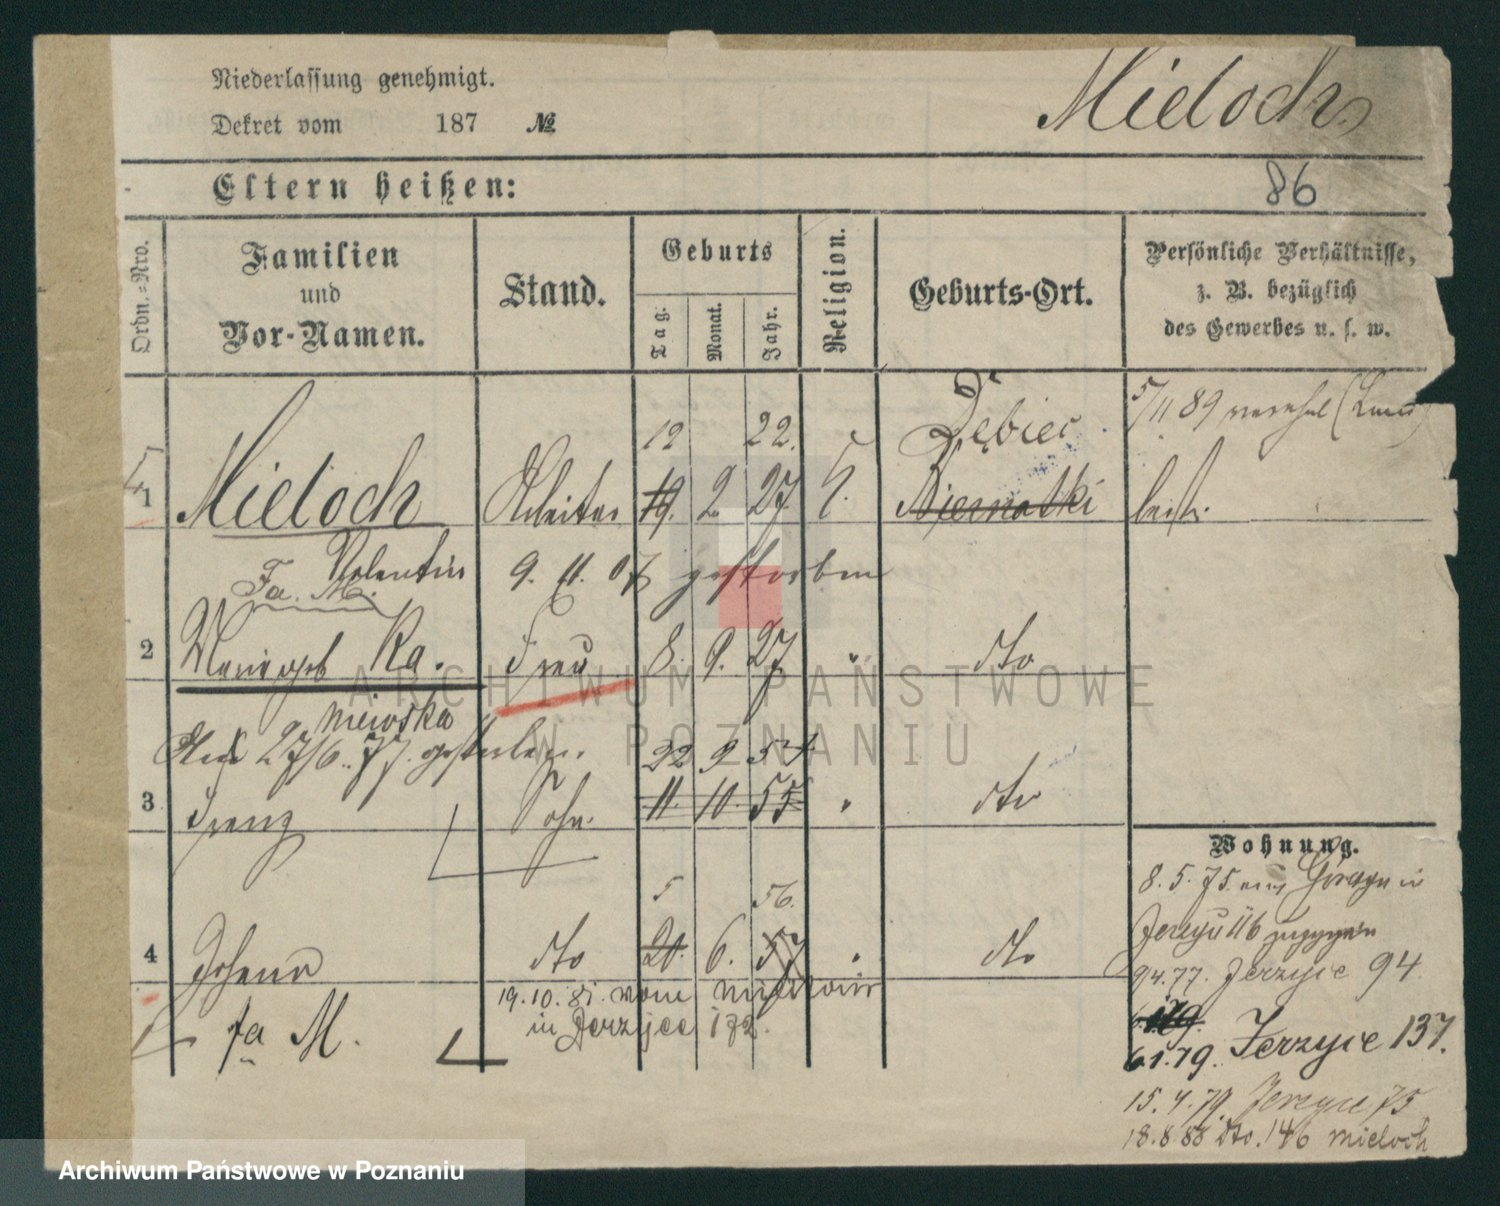 Niederlassung genehmigt.
Dekret vom 187 №
Mieloch
Eltern heißen:
86
Ordn.-Nro.
Familien
und
Vor-Namen.
Stand.
Geburts
Tag.
Monat.
Jahr.
Religion.
Geburts-Ort.
Persönliche Verhältnisse,
z. B. bezüglich
des Gewerbes u. s. w.
12 22.
Dębiec
5/11 89
1 Mieloch Arbeiter 19. 2. 27. Biernatki
Valentin 9. 11. 07 gestorben
Fa. M.
2 Maria geb Ra. Frau 8. 9. 27 " dto
niewska
27/6. 77. gestorben.
22 9 54
3 Franz Sohn. 11. 10. 55 " dto
Wohnung.
8. 5. 75. aus Gurczyn in
Jerzyce 116 zugezogen
5 56.
4 Johann dto 20. 6. 57 " dto
9 4. 77. Jerzyce 94
19. 10. 81. vom
in Jerzyce 172.
fa M.
6. 1. 79. Jerzyce 137.
15. 4. 79. Jerzyce 75
18. 8 88 dto. 146 Mieloch
ARCHIWUM PAŃSTWOWE
W POZNANIU
Archiwum Państwowe w Poznaniu